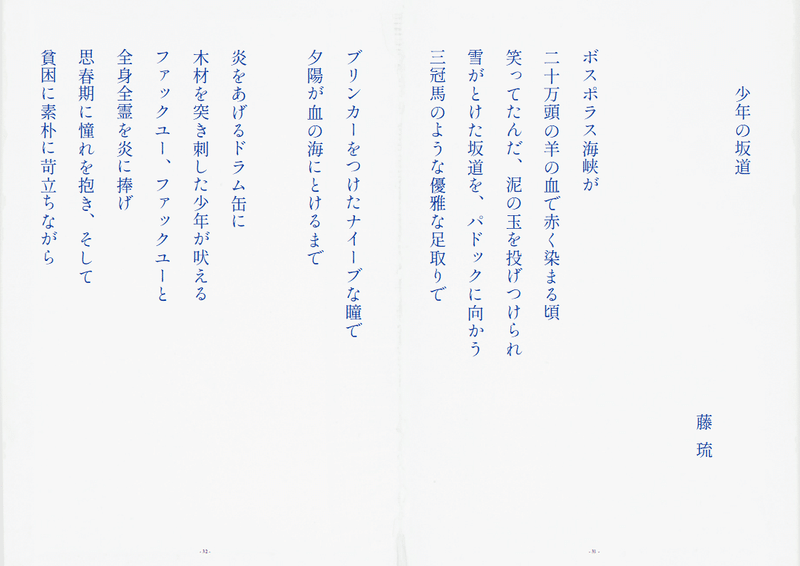 少年の坂道
藤 琉
ボスポラス海峡が
二十万頭の羊の血で赤く染まる頃
笑ってたんだ、泥の玉を投げつけられ
雪がとけた坂道を、パドックに向かう
三冠馬のような優雅な足取りで
- 31 -
ブリンカーをつけたナイーブな瞳で
夕陽が血の海にとけるまで
炎をあげるドラム缶に
木材を突き刺した少年が吠える
ファックユー、ファックユーと
全身全霊を炎に捧げ
思春期に憧れを抱き、そして
貧困に素朴に苛立ちながら
- 32 -